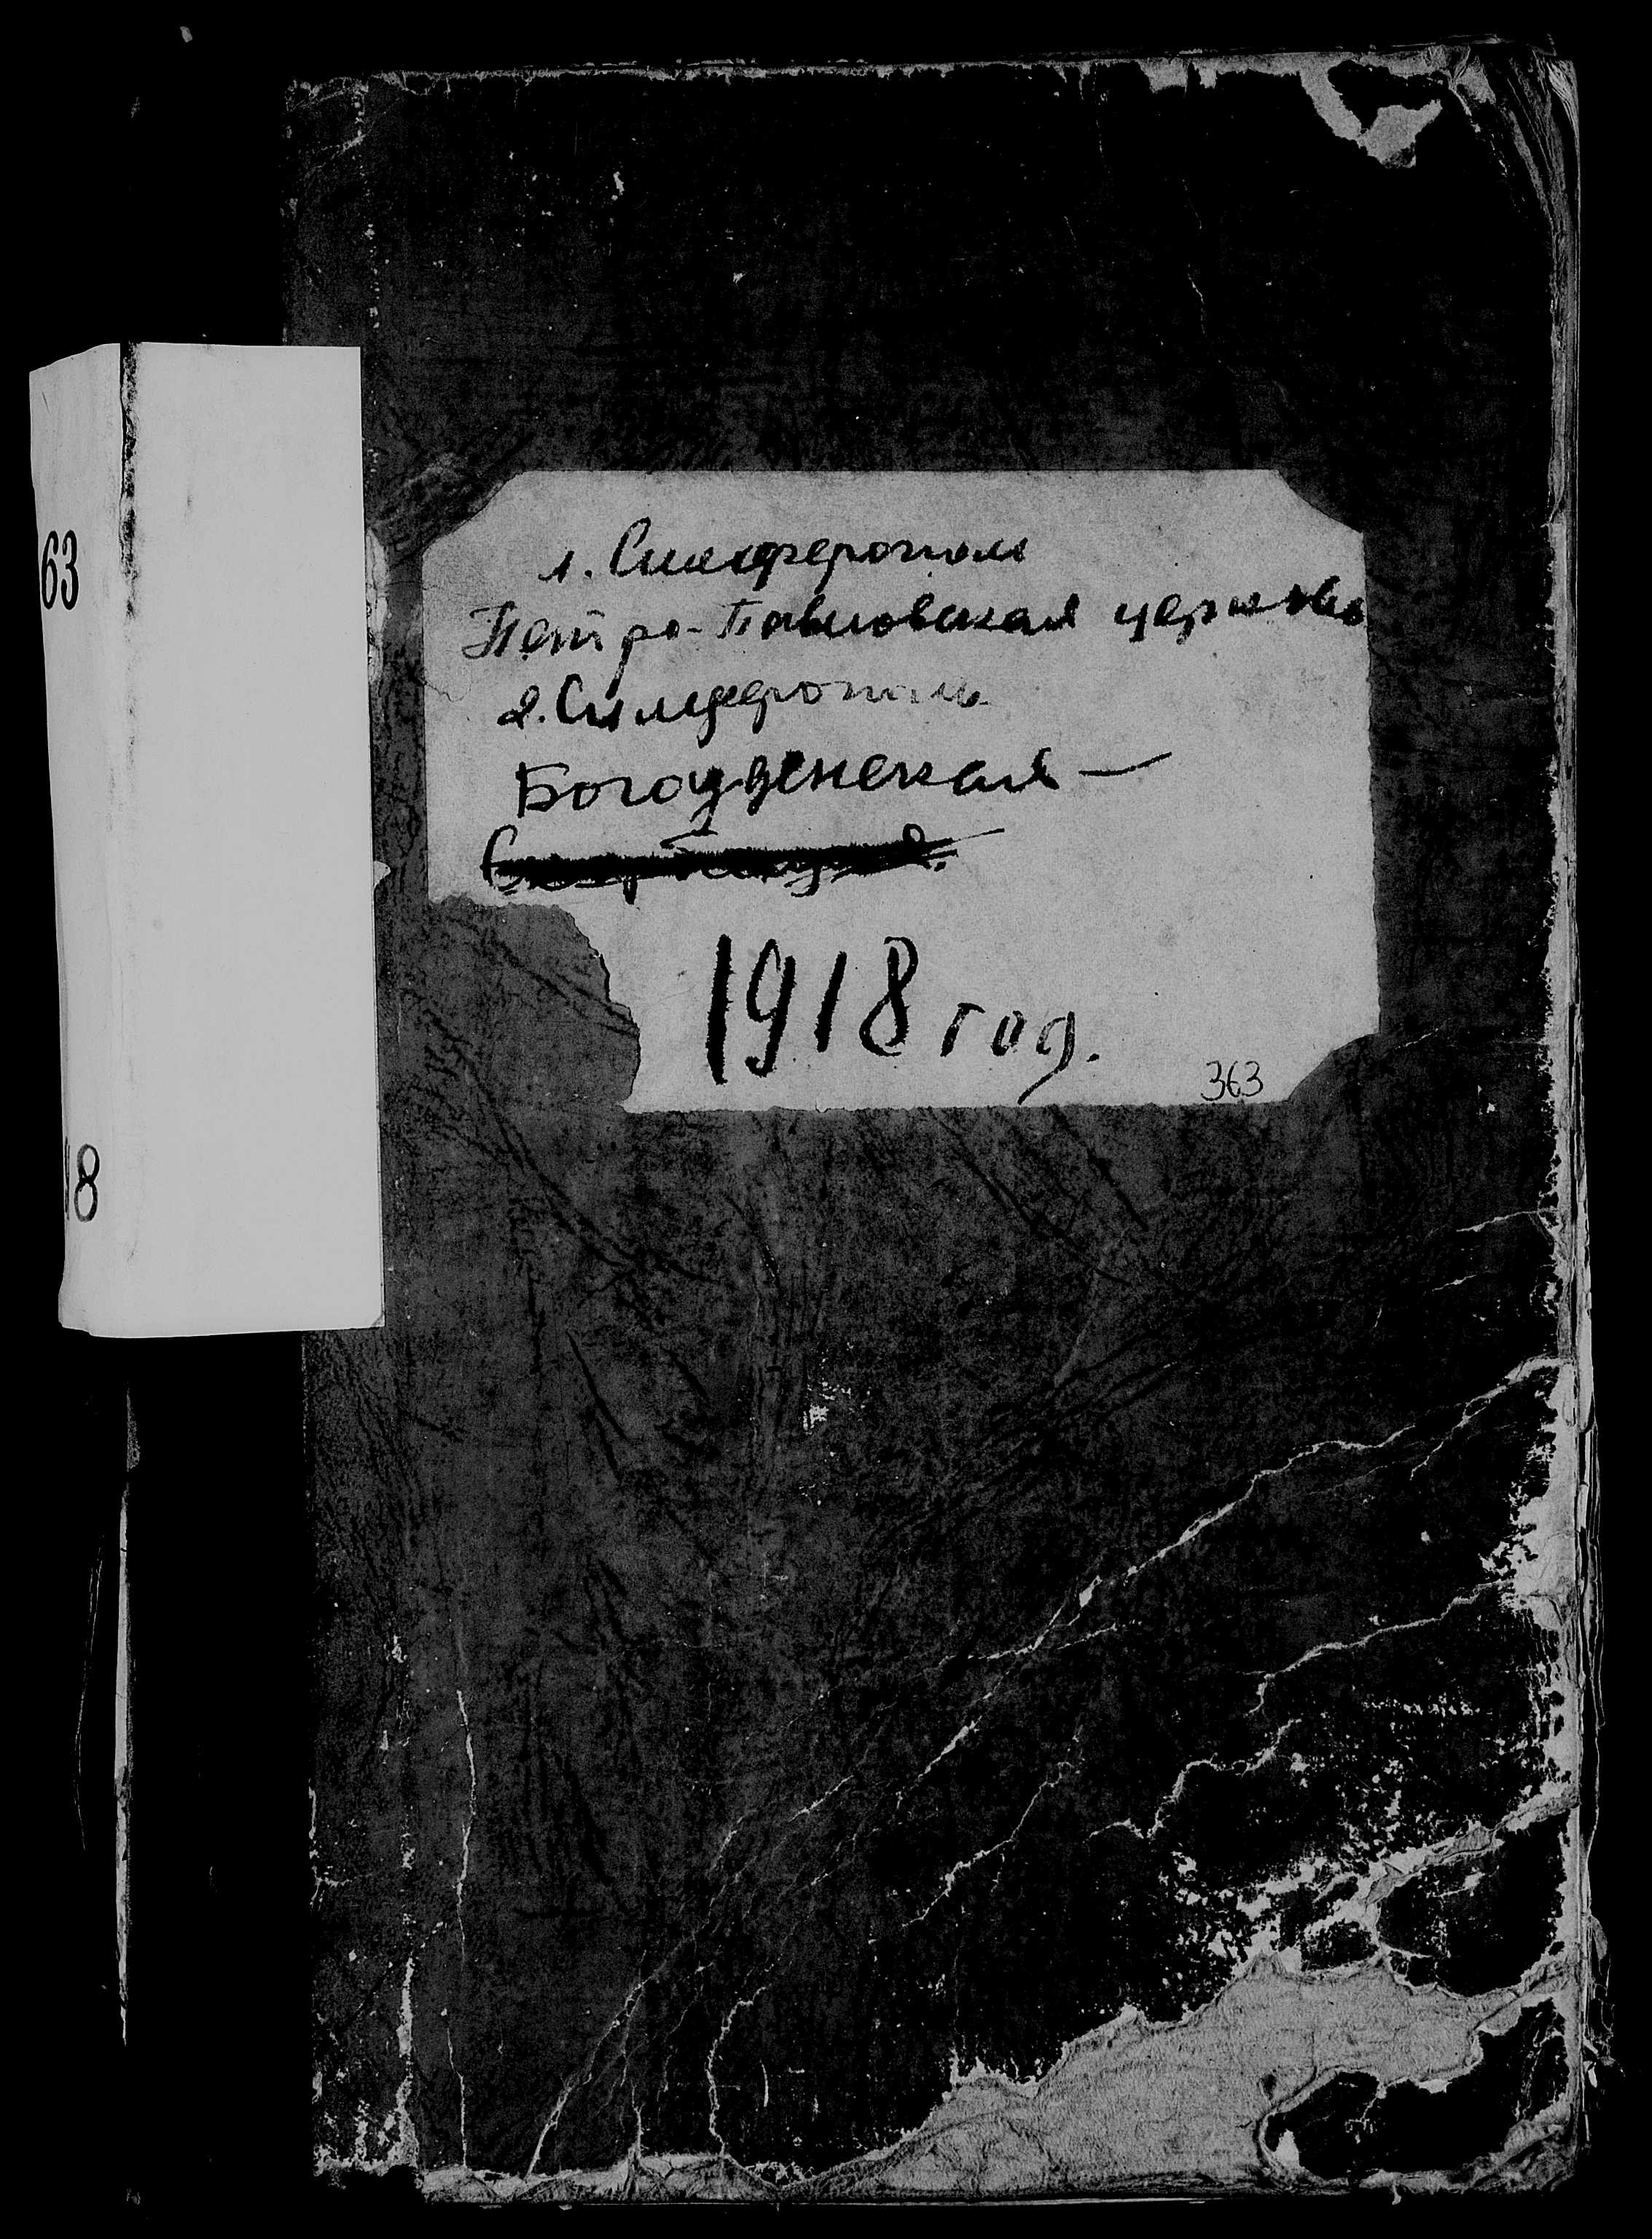 63
18
1. Симферополь
Петро-Павловская церковь
2. Симферополь
Богаденская —
1918 год.
363